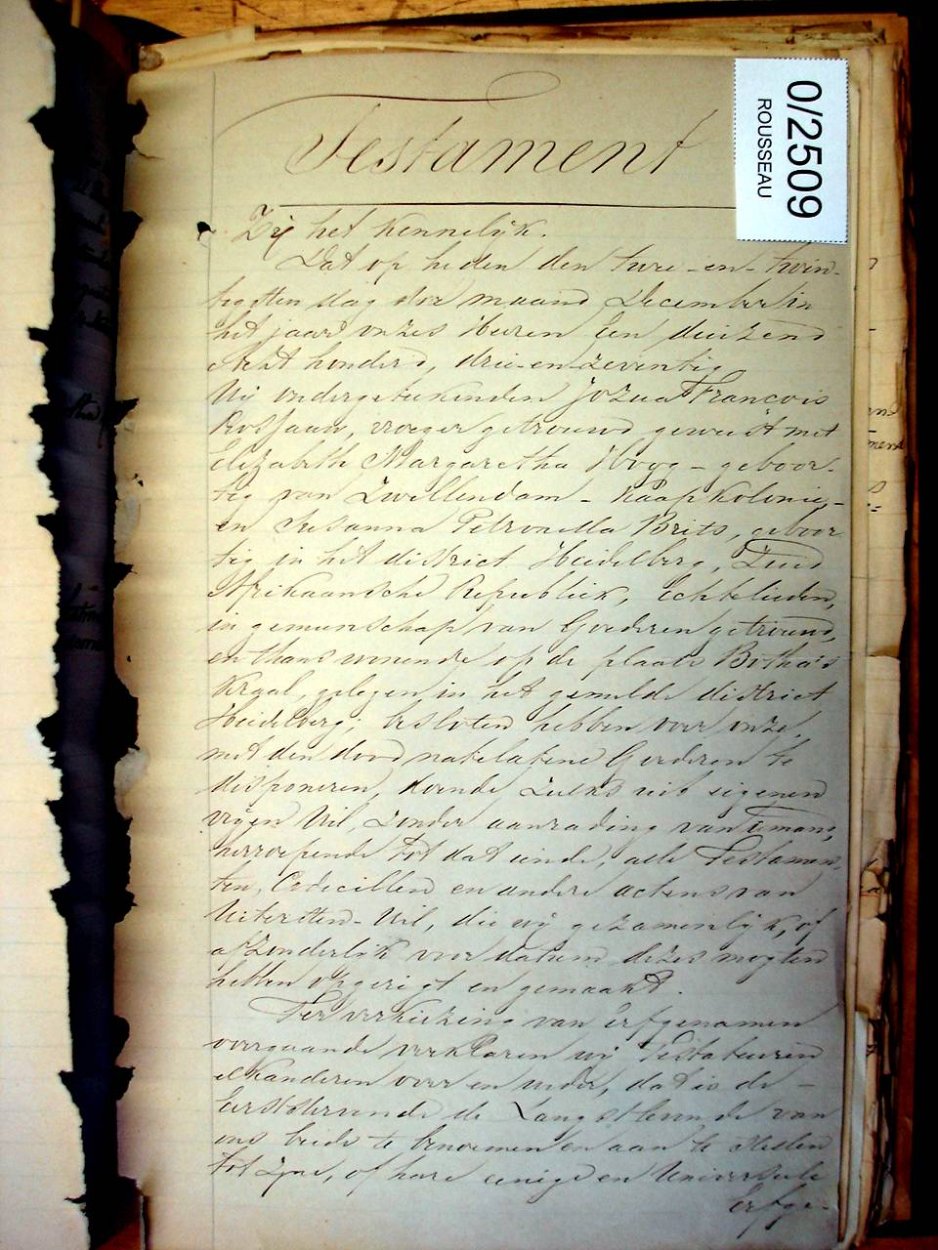 Testament
0/2509
ROUSSEAU
Zij het kennelijk.
Dat op heden den twee-en-twin-
tigsten dag der maand December in
het jaar onzes Heeren Een duizend
Acht honderd, drie-en-zeventig
Wij ondergeteekenden Jozua François
Robjaun, vroeger getrouwd geweest met
Elizabeth Margaretha Hoog - geboor-
tig van Zwellendam - Kaap Kolonie -
en Susanna Petronella Brits, geboor
tig in het district Heidelberg, Zuid
Afrikaansche Republiek, Echtelieden,
in gemeenschap van Goederen getrouwd,
en thans wonende op de plaats Botha's
Kraal, gelegen in het gemelde district
Heidelberg, besloten hebben over onze,
met den dood natelatene Goederen te
disponeren, doende zulks uit eigenen
vrijen Wil, zonder aanrading van iemand,
herroepende tot dat einde, alle Testamen-
ten, Codecillen en andere actens van
Uitersten-Wil, die wij gezamenlijk, of
afzonderlijk voor datum dezes mogten
hebben opgerigt en gemaakt.
Ter verkiezing van Erfgenamen
overgaande verklaren wij Testateuren
elkanderen over en weder, dat is de -
Eerststervende de Langstlevende van
ons beide te benoemen en aan te stellen
tot zyne, of hare eenige en Universeele
Erfge-